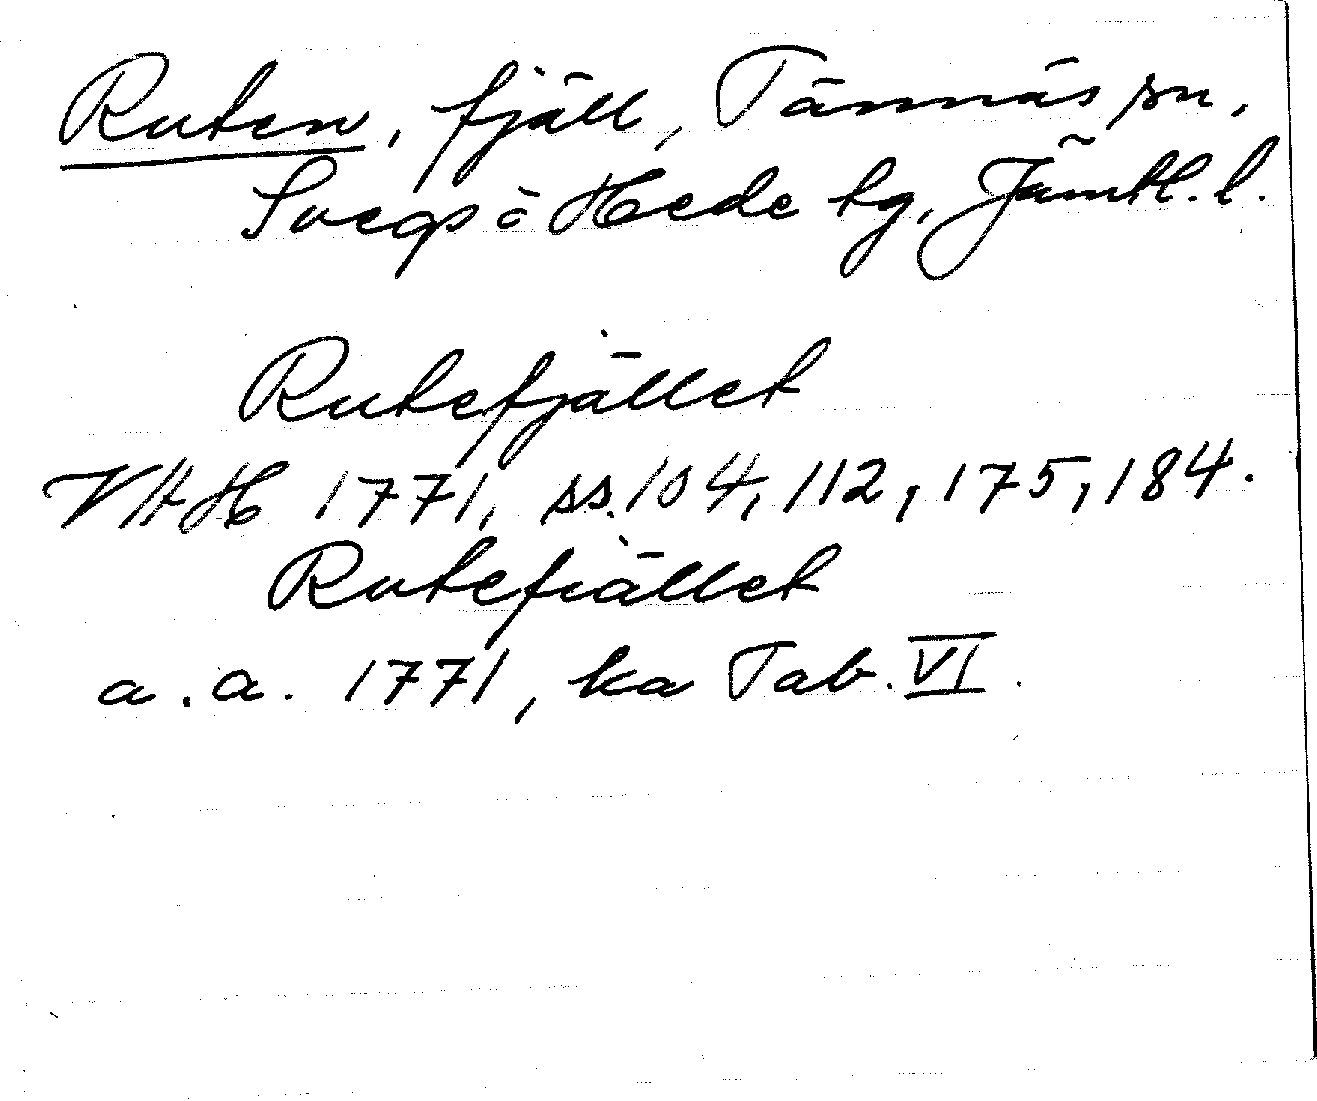 Ruten, fjäll, Tännäs sn,
Svegs o Hede tg, Jämtl. l.
Rutefjället
VHH 1771, ss. 104, 112, 175, 184.
Rutefiället
a.a. 1771, ka Tab. VI.